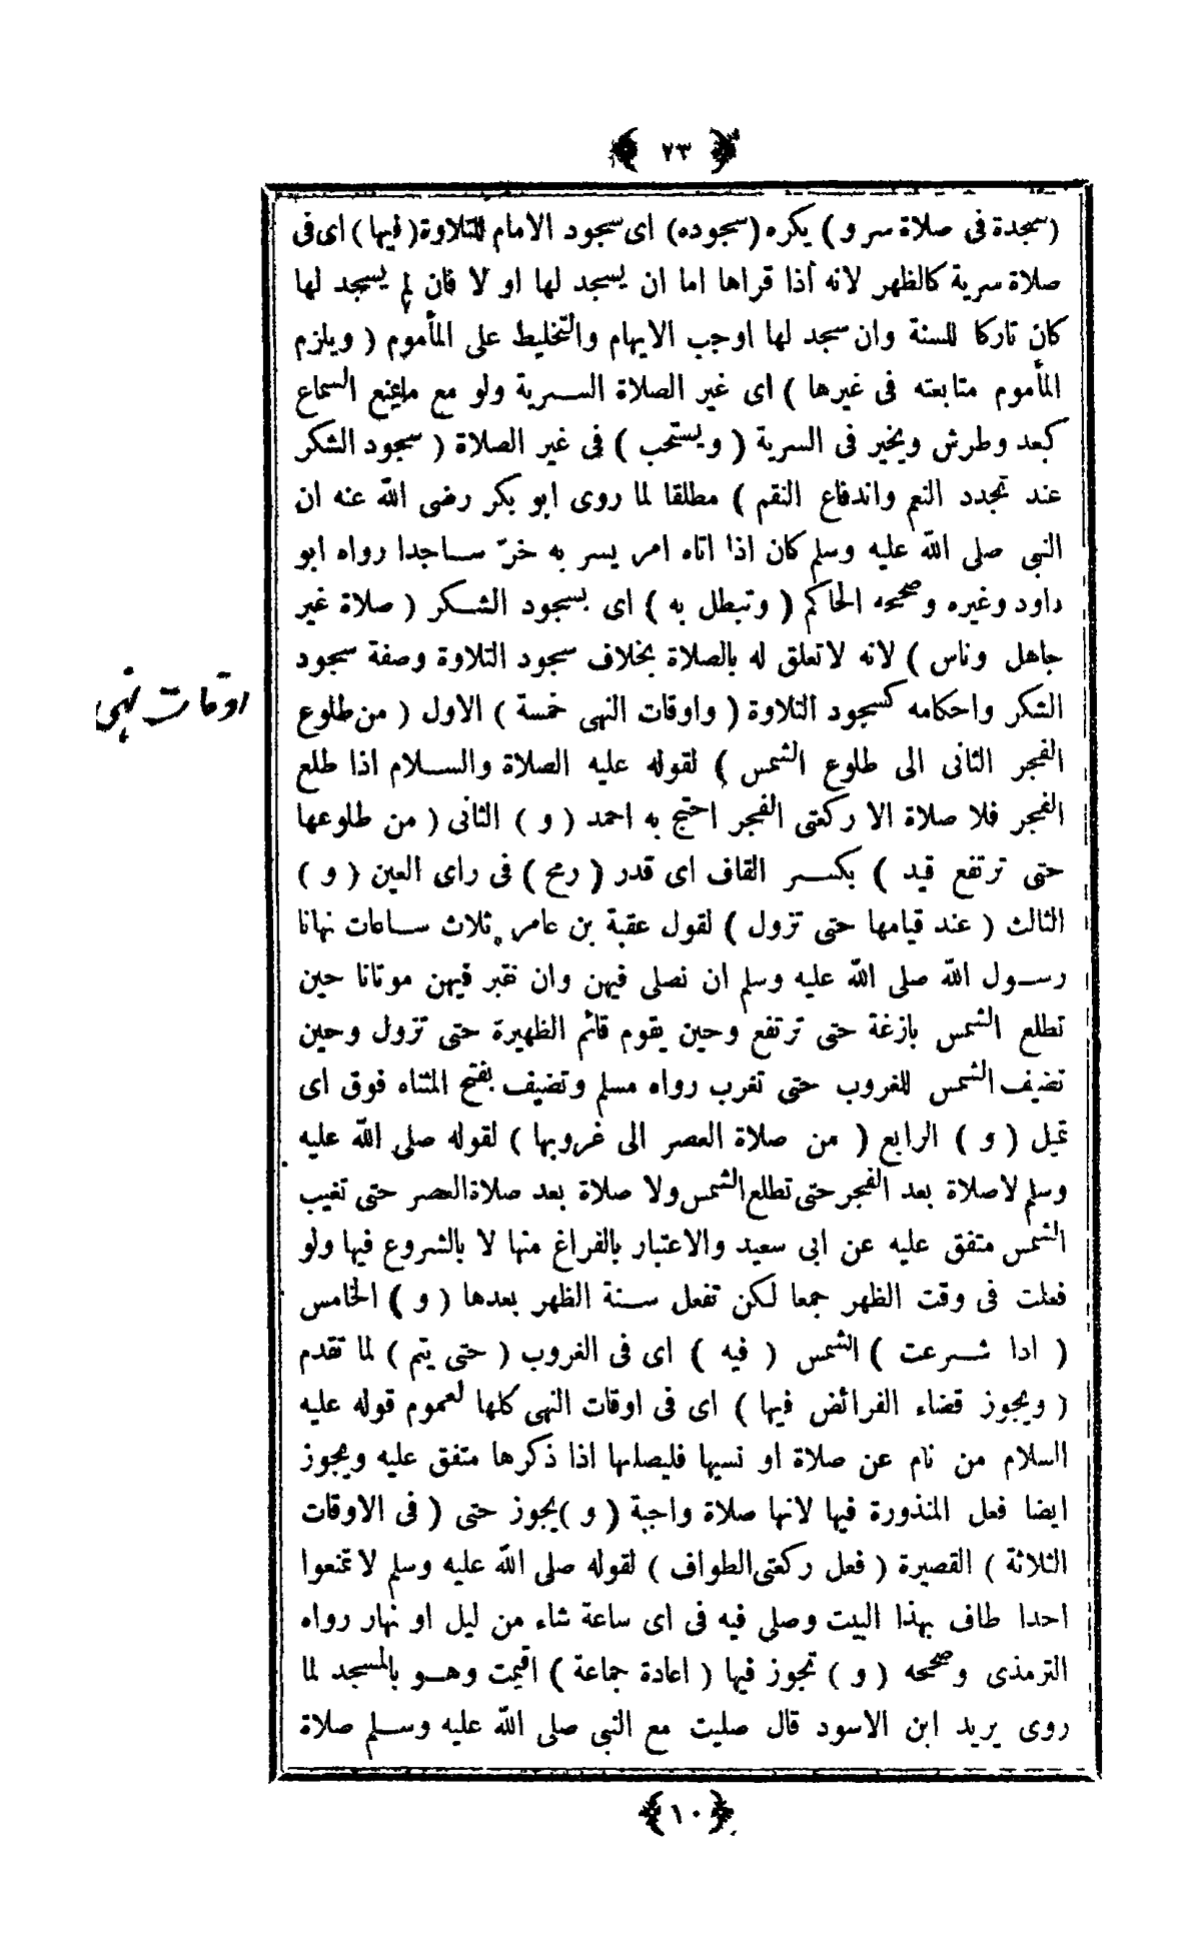 ٧٣
(سجدة فى صلاة سر و) يكره (سجوده) اى سجود الامام للتلاوة (فيها) اى فى
صلاة سرية كالظهر لانه أذا قراها اما ان يسجد لها او لا فان لم يسجد لها
كان تاركا للسنة وان سجد لها اوجب الايهام والتخليط على المأموم ( ويلزم
المأموم متابعته فى غيرها ) اى غير الصلاة السرية ولو مع مايمنع السماع
كبعد وطرش ويخير فى السرية ( ويستحب ) فى غير الصلاة ( سجود الشكر
عند تجدد النعم واندفاع النقم ) مطلقا لما روى ابو بكر رضى الله عنه ان
النبى صلى الله عليه وسلم كان اذا اتاه امر يسر به خرّ ساجدا رواه ابو
داود وغيره وصححه الحاكم ( وتبطل به ) اى بسجود الشكر ( صلاة غير
جاهل وناس ) لانه لاتعلق له بالصلاة بخلاف سجود التلاوة وصفة سجود
الشكر واحكامه كسجود التلاوة ( واوقات النهى خمسة ) الاول ( من طلوع
اوقات نهى
الفجر الثانى الى طلوع الشمس ) لقوله عليه الصلاة والسلام اذا طلع
الفجر فلا صلاة الا ركعتى الفجر احتج به احمد ( و ) الثانى ( من طلوعها
حتى ترتفع قيد ) بكسر القاف اى قدر ( رمح ) فى راى العين ( و )
الثالث ( عند قيامها حتى تزول ) لقول عقبة بن عامر ثلاث ساعات نهانا
رسول الله صلى الله عليه وسلم ان نصلى فيهن وان نقبر فيهن موتانا حين
تطلع الشمس بازغة حتى ترتفع وحين يقوم قائم الظهيرة حتى تزول وحين
تضيف الشمس للغروب حتى تغرب رواه مسلم وتضيف بفتح المثناه فوق اى
تميل ( و ) الرابع ( من صلاة العصر الى غروبها ) لقوله صلى الله عليه
وسلم لاصلاة بعد الفجر حتى تطلع الشمس ولا صلاة بعد صلاة العصر حتى تغيب
الشمس متفق عليه عن ابى سعيد والاعتبار بالفراغ منها لا بالشروع فيها ولو
فعلت فى وقت الظهر جمعا لكن تفعل سنة الظهر بعدها ( و ) الخامس
( اذا شرعت ) الشمس ( فيه ) اى فى الغروب ( حتى يتم ) لما تقدم
( ويجوز قضاء الفرائض فيها ) اى فى اوقات النهى كلها لعموم قوله عليه
السلام من نام عن صلاة او نسيها فليصلها اذا ذكرها متفق عليه ويجوز
ايضا فعل المنذورة فيها لانها صلاة واجبة ( و ) يجوز حتى ( فى الاوقات
الثلاثة ) القصيرة ( فعل ركعتى الطواف ) لقوله صلى الله عليه وسلم لا تمنعوا
احدا طاف بهذا البيت وصلى فيه فى اى ساعة شاء من ليل او نهار رواه
الترمذى وصححه ( و ) تجوز فيها ( اعادة جماعة ) اقيمت وهو بالمسجد لما
روى يريد ابن الاسود قال صليت مع النبى صلى الله عليه وسلم صلاة
١٠